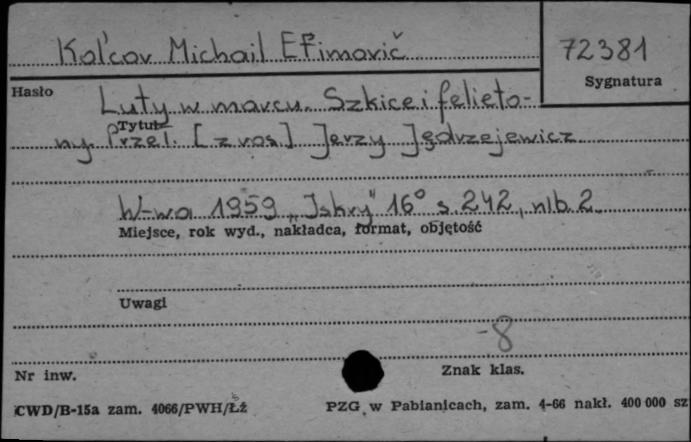 Kol'cov Michail Efimovič
72381
Sygnatura
Hasło
Luty w marcu. Szkice i felieto-
Tytuł
ny. Przeł. [z ros] Jerzy Jędrzejewicz
W-wa 1959 „Iskry" 16° s. 242, nlb. 2
Miejsce, rok wyd., nakładca, format, objętość
Uwagi
-8
Nr inw.
Znak klas.
CWD/B-15a zam. 4066/PWH/Łż
PZG w Pabianicach, zam. 4-66 nakł. 400 000 sz